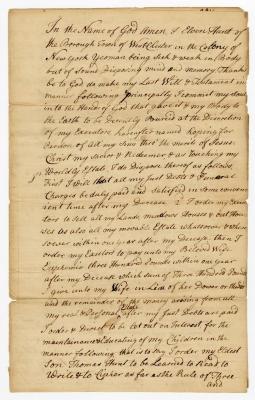 In the Name of God Amen I Elven Hunt of
the Borough Town of West Chester in the Colony of
New york Yeoman being Sick & weak in Body
but of sound Disposing mind and memory Thanks
be to God do make my Last Will & Testament in
manner following Principally I commit my Soul
into the Hands of God that gave it & my Body to
the Earth to be Decently Buried at the Discretion
of my Executors hereafter named hoping for
Pardon of all my Sins thro' the merits of Jesus
Christ my Savior & Redeemer & as Touching my
Worldly Estate I do Dispose thereof as follows
First I will that all my Just Debts & Funeral
Charges be duly paid and Satisfied in Some conven
ient time after my Decease I order my Execu
tors to sell all my Lands meadows Houses & out Hou
ses as also all my movable Estate whatsoever & where
soever within one year after my Decease, then I
order my Executors to pay unto my Beloved Wife
Euphemia three Hundred Pounds within one year
after my Decease which sum of Three Hundred Pounds
I give unto my Wife in Lieu of her Dower or thirds
and the remainder of the money arising from all
my real & Personal Estate after my Just Debts are paid
I order & Direct to be let out on Interest for the
maintainance & Educating of my Children in the
manner following that is to say I order my Eldest
Son Thomas Hunt to be Learned to Read to
Write & to Cypher as far as the Rule of Three
and